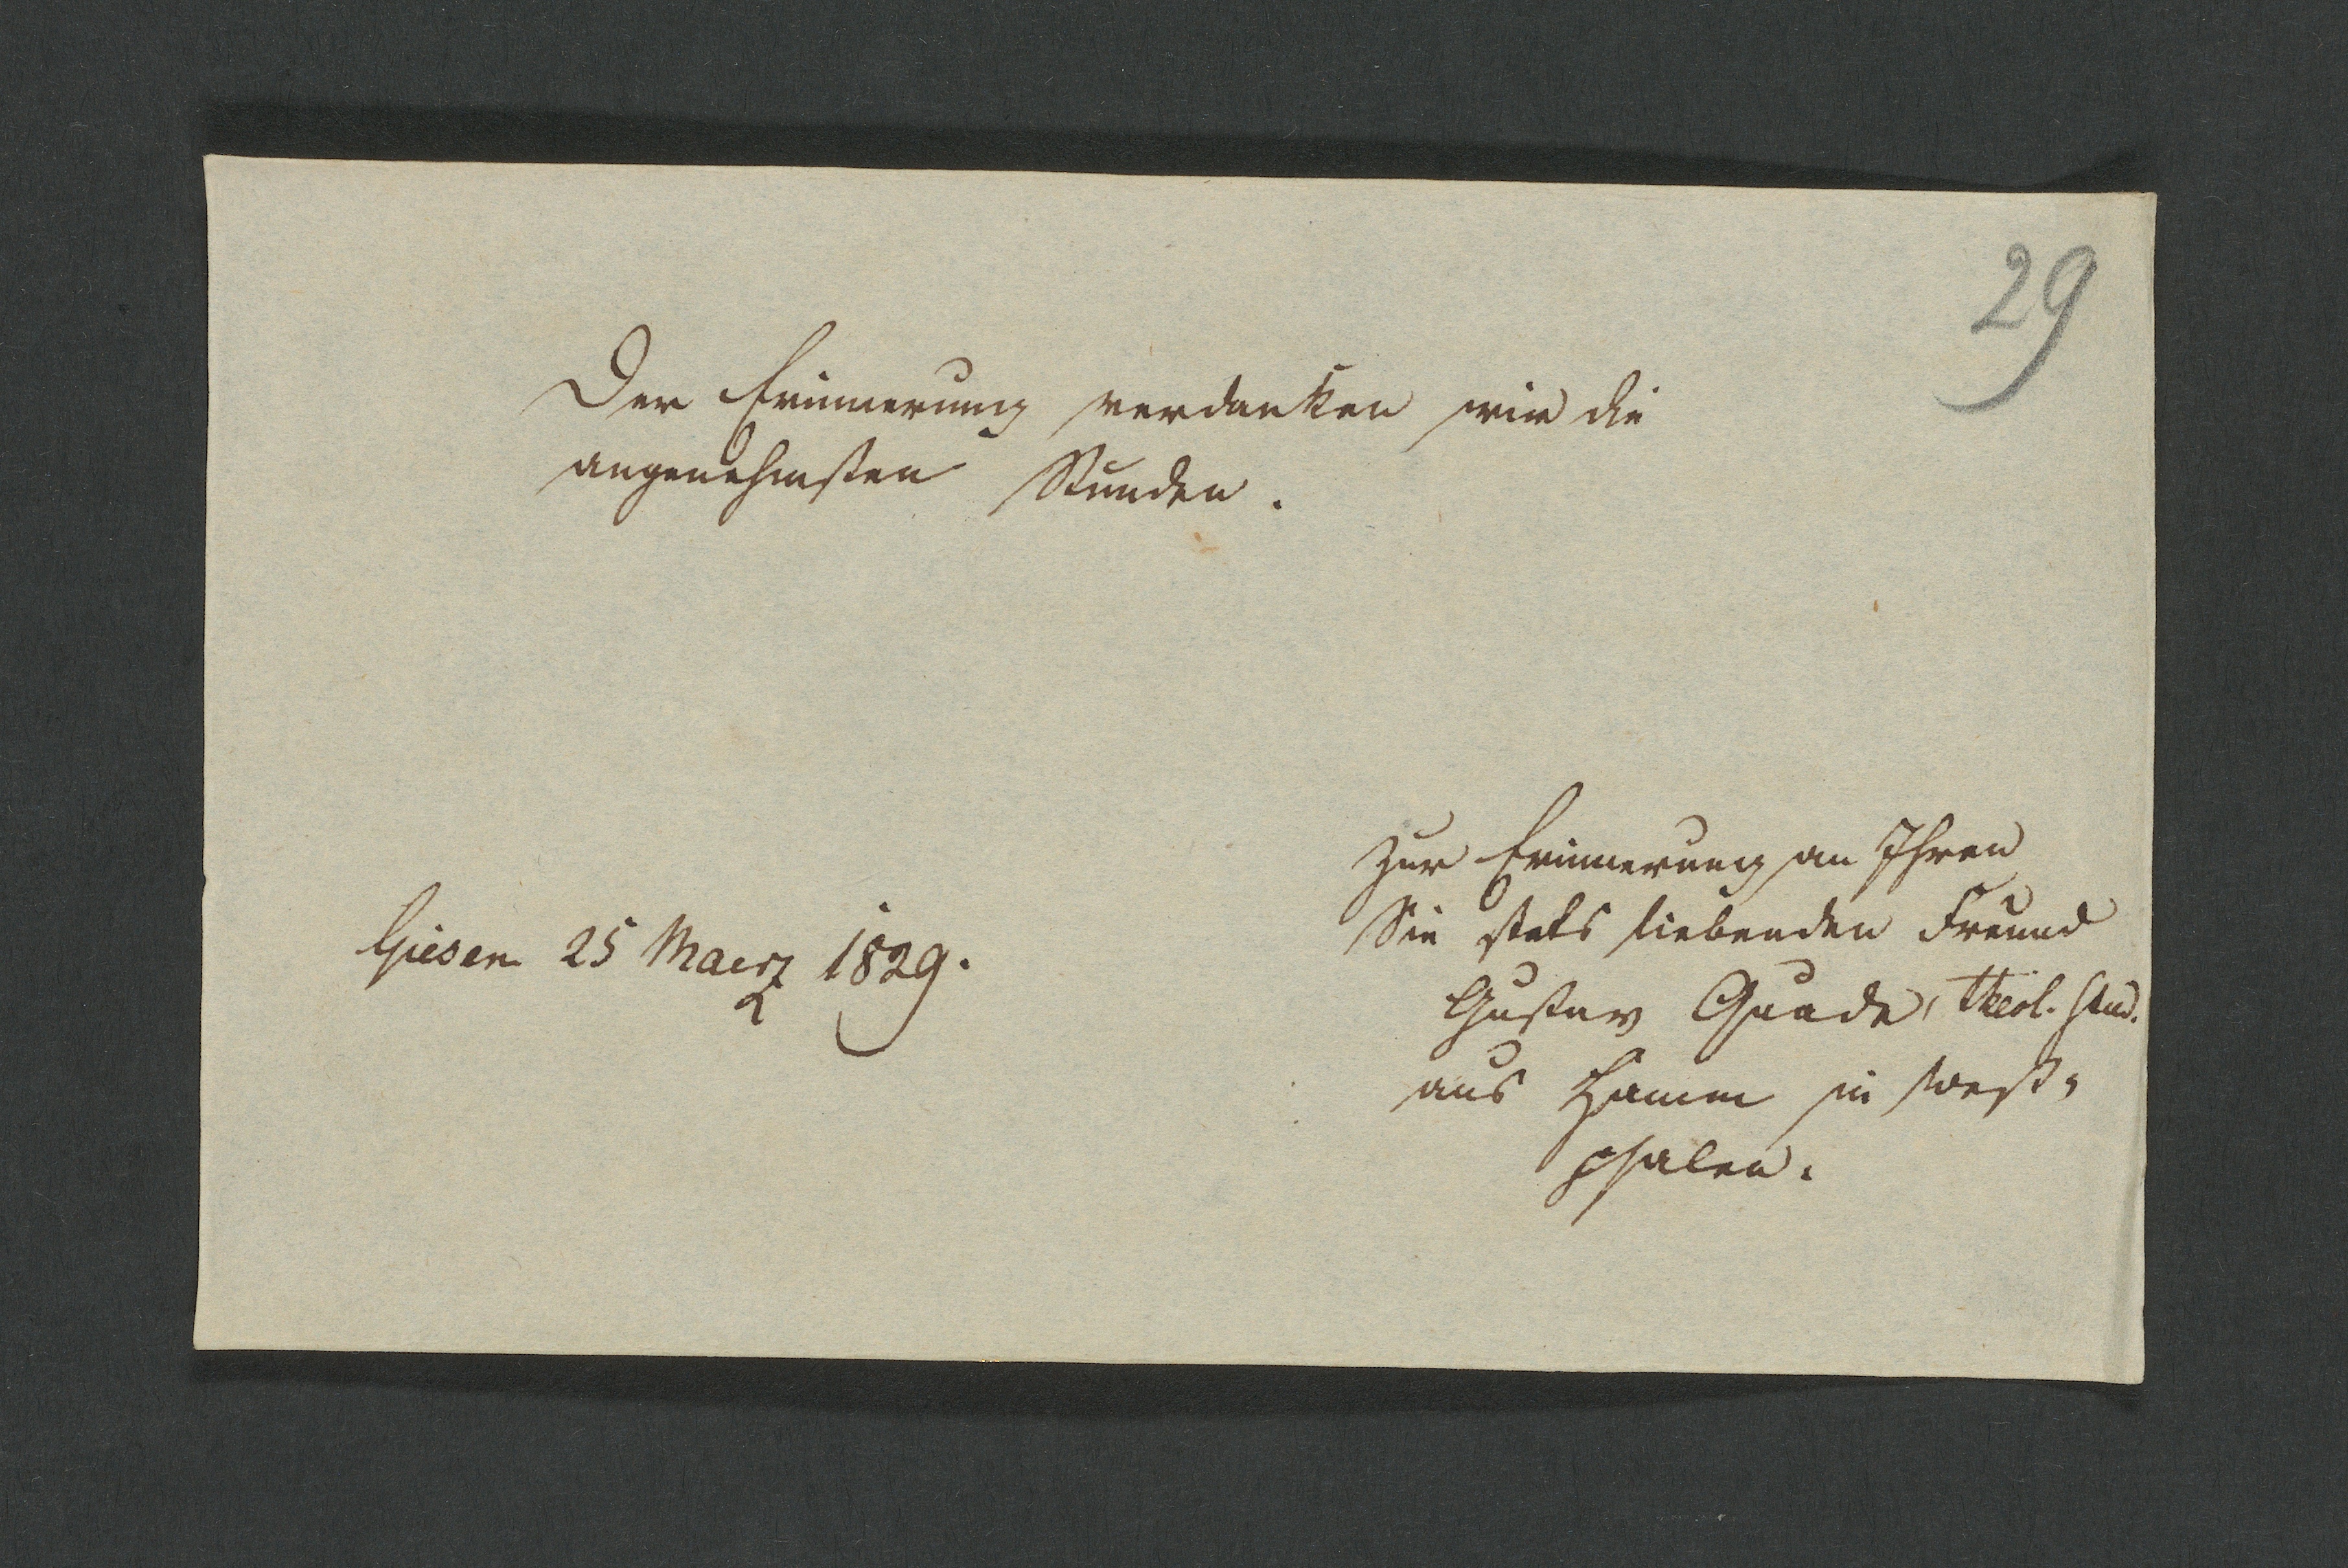 29
Der Erinnerung verdanken wir die
angenehmsten Stunden.
Giesen 25 Maerz 1829.
Zur Erinnerung an Ihren
Sie stets liebenden Freund
Gustav Quade, theol. stud.
aus Hamm in West-
phalen.